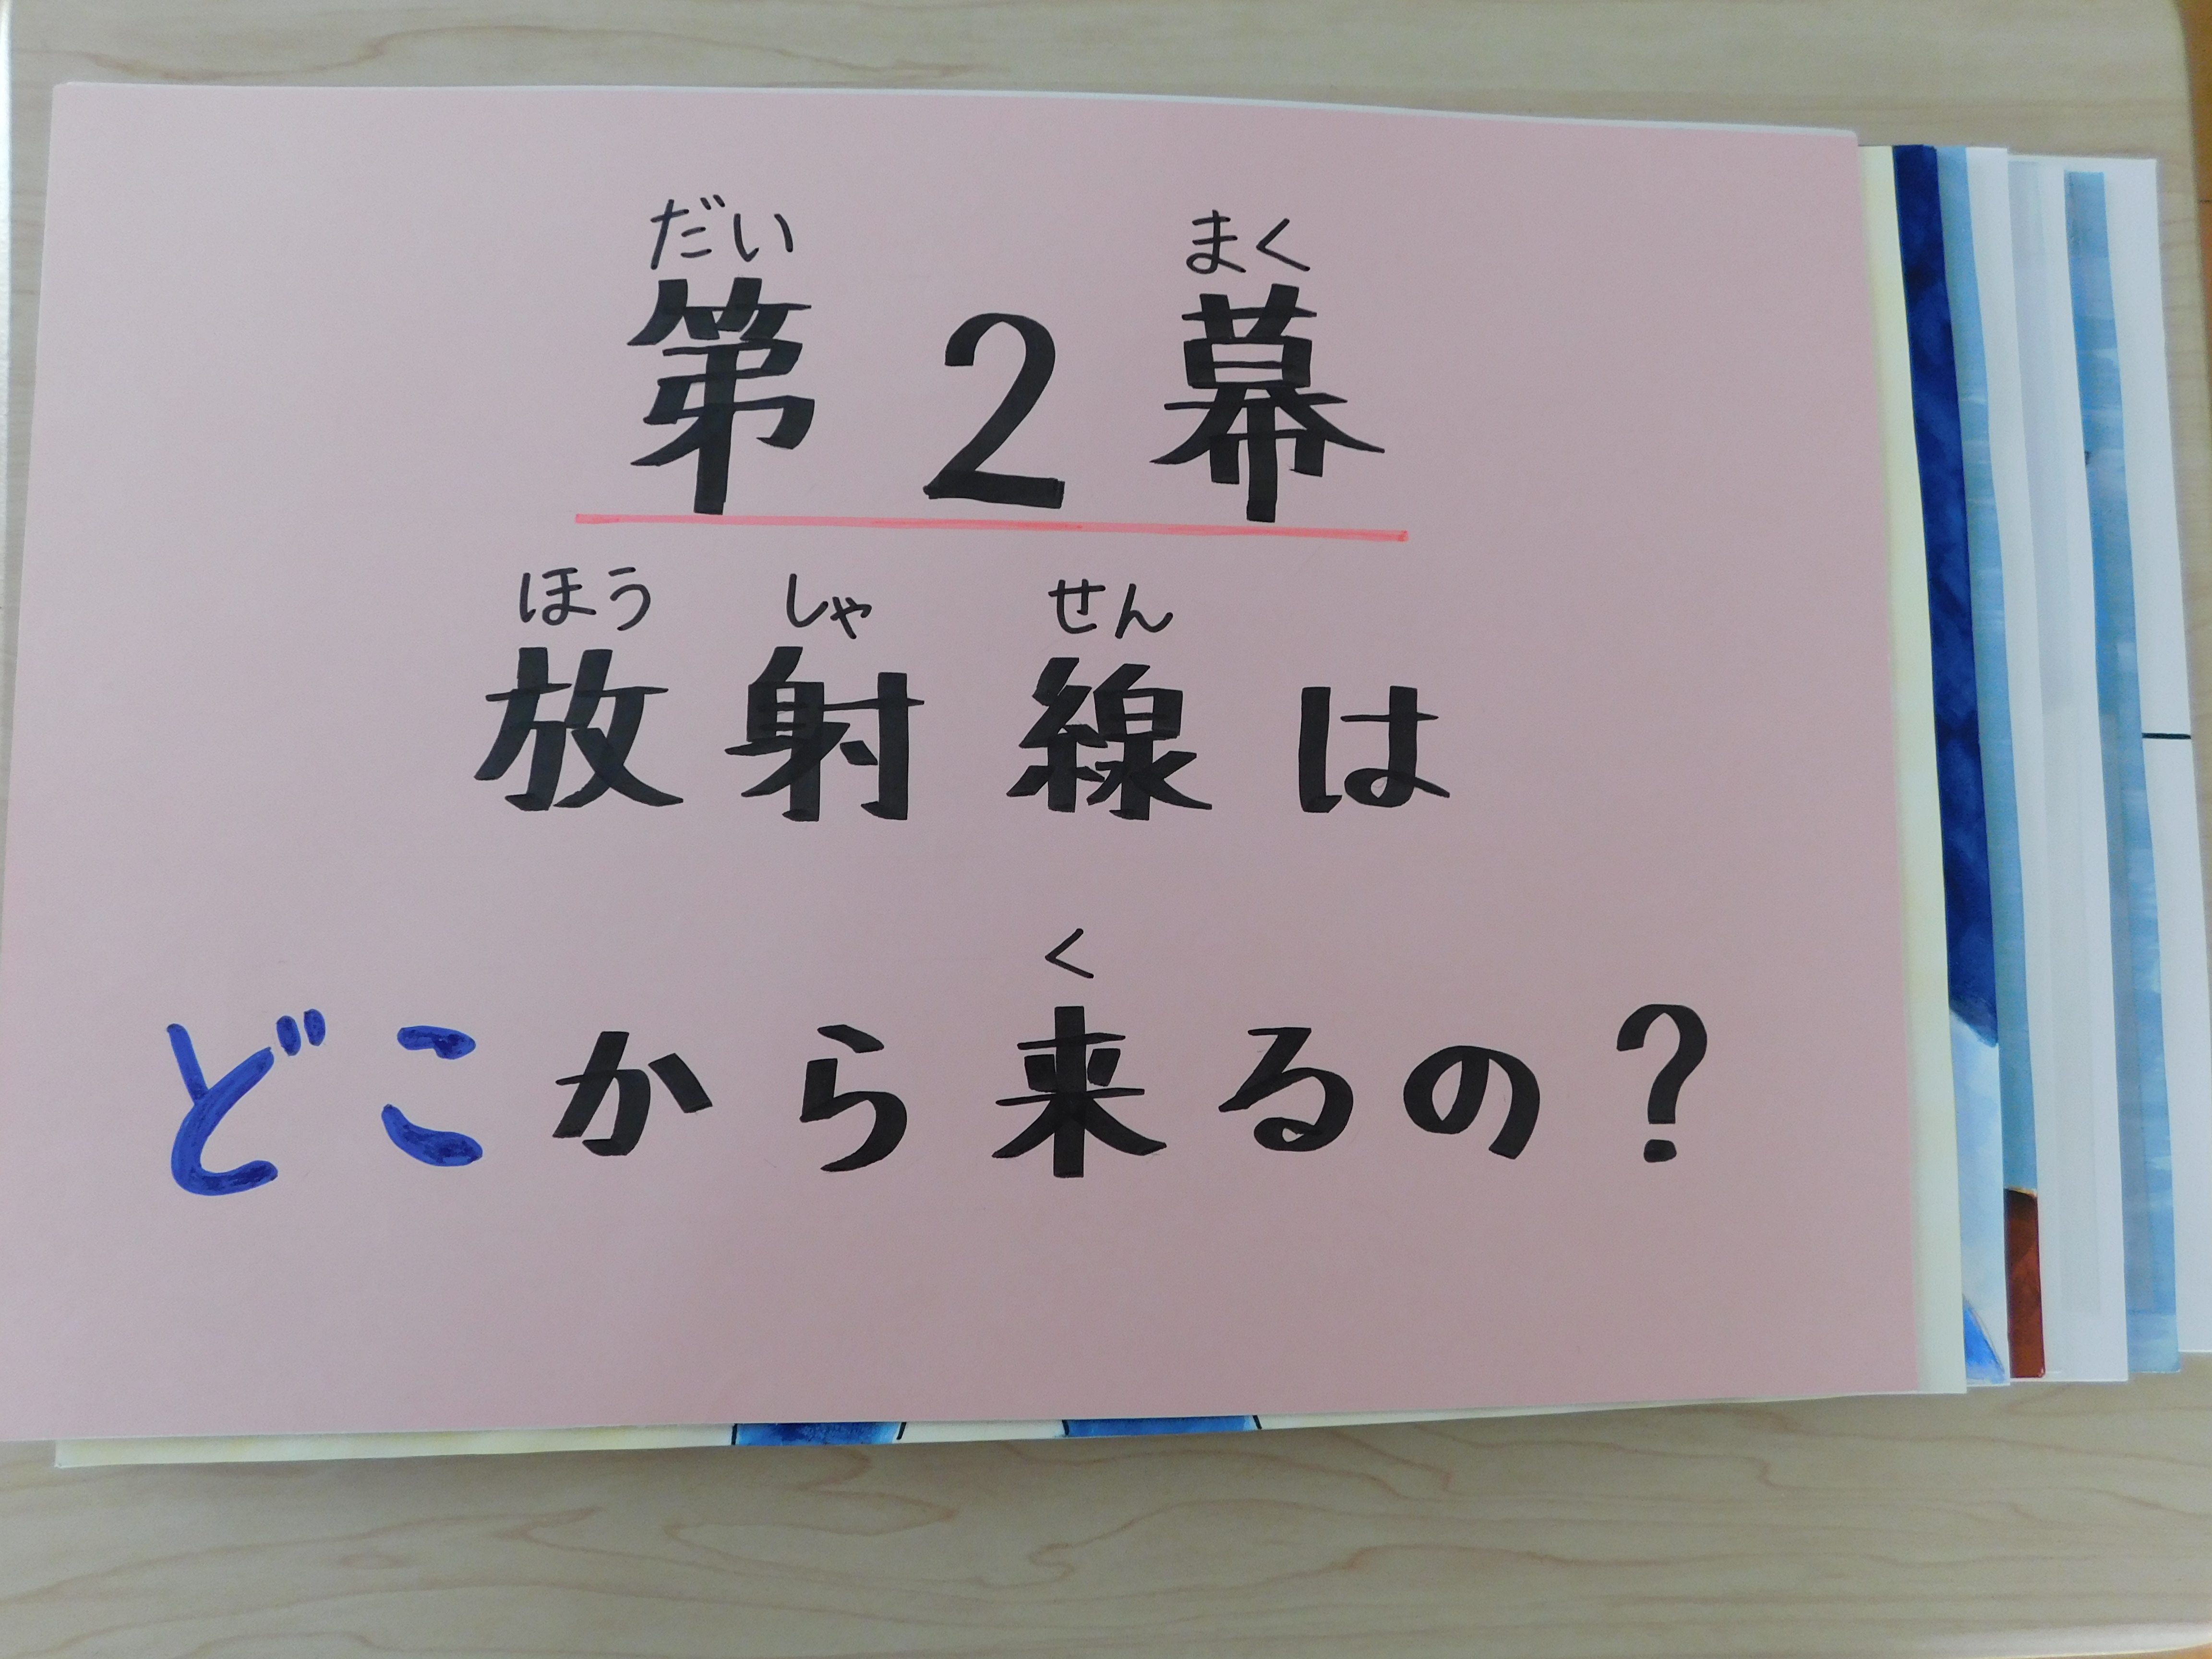 だい まく
第2幕
ほう しゃ せん
放射線は
く
どこから来るの?